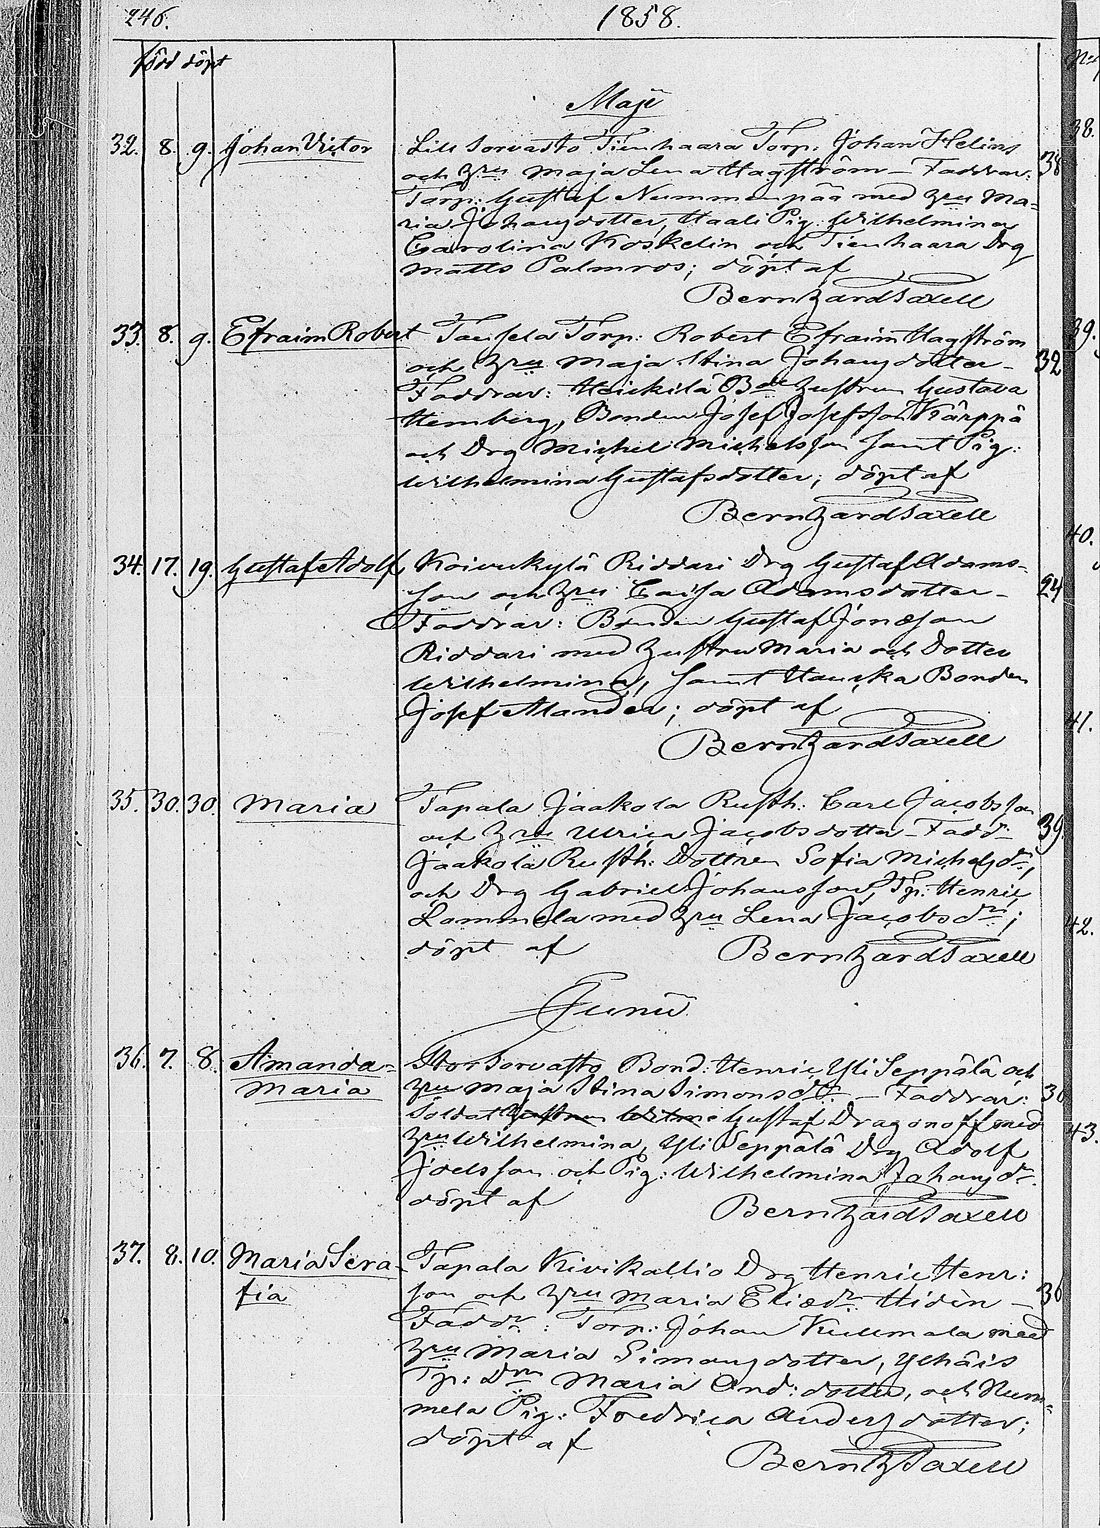 246. 1858.
född döpt
Maji
32. 8. 9. Johan Victor Lill Sorvasto Tienhaara Torp. Johan Helins 38
och Hru Maja Lena Hagström – Faddrar:
Torp. Gustaf Nummenpää med Hru Ma-
ria Johansdotter, Haali Pig. Wilhelmina
Carolina Koskelin och Tienhaara Drg
Matts Palmros; döpt af
Bernhard Saxell
33. 8. 9. Efraim Robert Torp: Robert Efraim Hagström
och Hru Maja Stina Johansdotter – 32
Faddrar: Heickilä Bde Hustrun Gustava
Hemberg, Bonden Josef Josefsson Kärppä
och Drg Michel Michelsson samt Pig:
Wilhelmina Gustafsdotter; döpt af
Bernhard Saxell
34. 17. 19. Gustaf Adolf Koivukylä Riddari Drg Gustaf Adams-
son och Hru Caisa Adamsdotter – 24
Faddrar: Bonden Gustaf Jonasson
Riddari med Hustru Maria och Dotter
Wilhelmina, samt Bonden
Josef Alander; döpt af
Bernhard Saxell
35. 30. 30. Maria Tapala Jaakola Rusth: Carl Jacobsson
och Hru Ulrica Jacobsdotter – Fadd: 39.
Jaakola Rusth: Dottren Sofia Michelsdr,
och Drg Gabriel Johansson, Tp. Henric
Lammela med Hru Lena Jacobsdr;
döpt af Bernhard Saxell
Junii
36. 7. 8. Amanda Stor Sorvasto Bond: Henric Yli Seppälä och
Maria Hru Maja Stina Simonsdr. – Faddrar: 30
Soldat Gustaf Dragonoff med
Hru Wilhelmina, Yli Seppälä Drg Adolf
Joelsson och Pig: Wilhelmina Johansdr.
döpt af Bernhard Saxell
37. 8. 10. Maria Sera- Tapala Kivikallio Drg Henric Henr:
fia son och Hru Maria Eliædr. Hidèn – 36
Faddr: Torp: Johan Kullmala med
Hru Maria Simonsdotter, Ylhäis
Tp: Drn Maria And: dotter, och Num-
mela Pig: Fredrica Andersdotter;
döpt af
Bernh Saxell
38.
39.
40.
41.
42.
43.